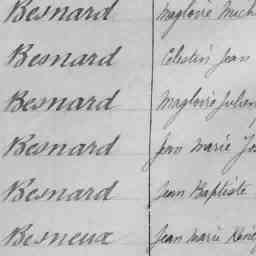 Besnard Magloire Mich
Besnard Célestin Jean
Besnard Magloire Julien
Besnard Jean Marie Jo
Besnard Jean Baptiste
Besneux Jean Marie René